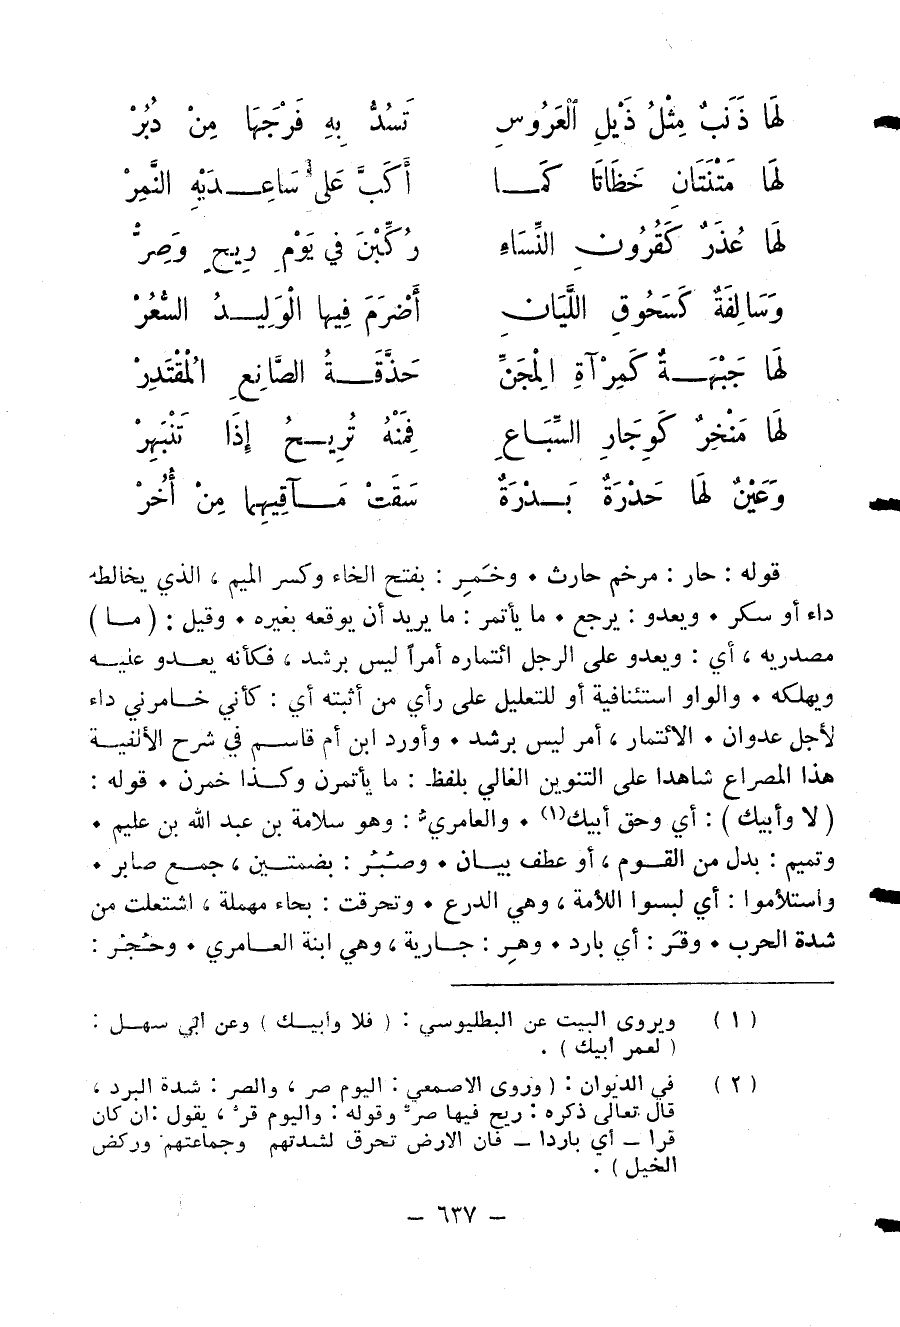 لَهَا ذَنَبٌ مِثْلُ ذَيْلِ العَرُوسِ تَسُدُّ بِهِ فَرْجَهَا مِنْ دُبُرْ
لَهَا مَتْنَتَانِ خَظَاتَا كَمَا أَكَبَّ عَلَى سَاعِدَيْهِ النَّمِرْ
لَهَا عُذَرٌ كَقُرُونِ النِّسَاءِ رُكِّبْنَ فِي يَوْمِ رِيحٍ وَصِرّْ
وَسَالِفَةٌ كَسَحُوقِ اللَّيَانِ أَضْرَمَ فِيهَا الْوَلِيدُ السُّعُرْ
لَهَا جَبْهَةٌ كَمِرْآةِ الْمِجَنِّ حَذَّقَهُ الصَّانِعُ الْمُقْتَدِرْ
لَهَا مَنْخِرٌ كَوِجَارِ السِّبَاعِ فَمِنْهُ تُرِيحُ إِذَا تَنْبَهِرْ
وَعَيْنٌ لَهَا حَدْرَةٌ بَدْرَةٌ سَقَتْ مَآقِيهَا مِنْ أُخُرْ
قوله : حار : مرخم حارث . وخَمِر : بفتح الخاء وكسر الميم ، الذي يخالطه
داء أو سكر . ويعدو : يرجع . ما يأتمر : ما يريد أن يوقعه بغيره . وقيل : ( ما )
مصدريه ، أي : ويعدو على الرجل ائتماره أمراً ليس برشد ، فكأنه يعدو عليه
ويهلكه . والواو استئنافية أو للتعليل على رأي من أثبته أي : كأني خامرني داء
لأجل عدوان . الائتمار ، أمر ليس برشد . وأورد ابن أم قاسم في شرح الألفية
هذا المصراع شاهدا على التنوين الغالي بلفظ : ما يأتمرن وكذا خمرن . قوله :
( لا وأبيك ) : أي وحق أبيك(١) . والعامريّ : وهو سلامة بن عبد الله بن عليم .
وتميم : بدل من القوم ، أو عطف بيان . وصُبُر : بضمتين ، جمع صابر .
واستلأموا : أي لبسوا اللأمة ، وهي الدرع . وتحرقت : بحاء مهملة ، اشتعلت من
شدة الحرب . وقَر : أي بارد . وهِر : جارية ، وهي ابنة العامري . وحُجُر :
( ١ ) ويروى البيت عن البطليوسي : ( فلا وأبيك ) وعن أبي سهل :
( لعمر أبيك ) .
( ٢ ) في الديوان : ( وروى الاصمعي : اليوم صر ، والصر : شدة البرد ،
قال تعالى ذكره : ريح فيها صرّ وقوله : واليوم قرّ ، يقول : ان كان
قرا – أي باردا – فان الارض تحرق لشدتهم وجماعتهم وركض
الخيل ) .
– ٦٣٧ –